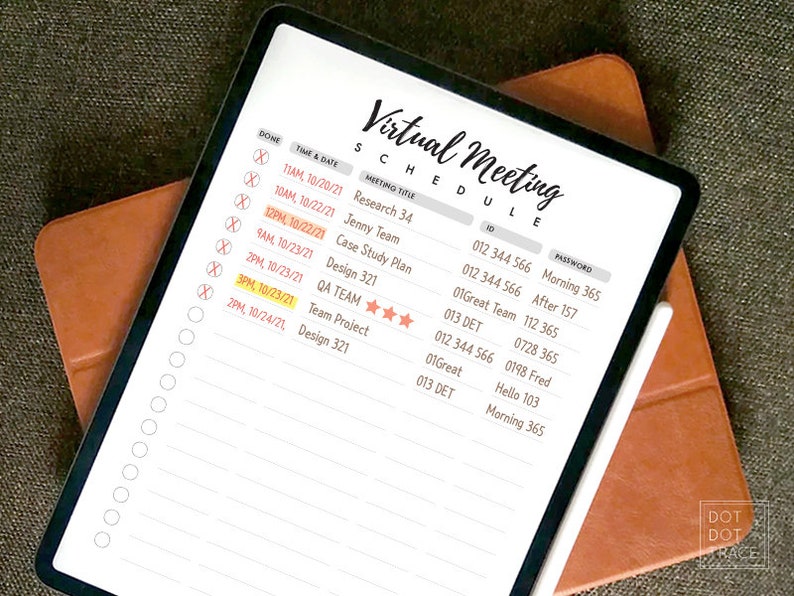 Virtual Meeting
SCHEDULE
DONE TIME & DATE MEETING TITLE ID PASSWORD
11AM, 10/20/21 Research 34 012 344 566 Morning 365
10AM, 10/22/21 Jenny Team 012 344 566 After 157
12PM, 10/22/21 Case Study Plan 01Great Team 112 365
9AM, 10/23/21 Design 321 013 DET 0728 365
2PM, 10/23/21 QA TEAM 012 344 566 0198 Fred
3PM, 10/23/21 Team Project 01Great Hello 103
2PM, 10/24/21, Design 321 013 DET Morning 365
DOT
DOT
TRACE